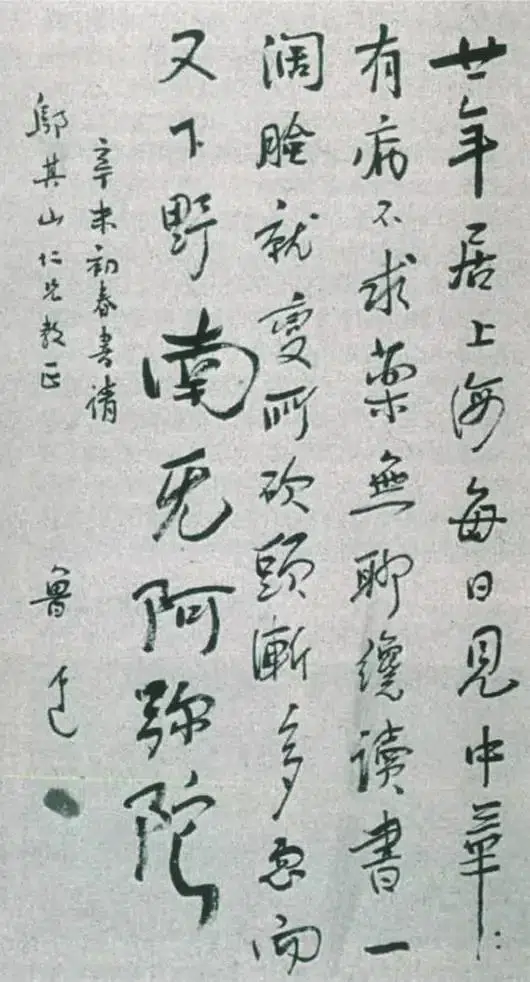 廿年居上海每日見中華
有病不求藥無聊纔讀書一
闊臉就變所砍頭漸多忽而
又下野南无阿弥陀
辛未初春書請
鄔其山仁兄教正 魯迅